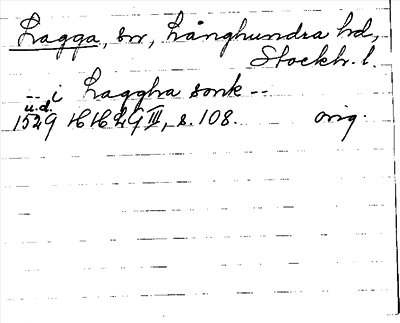 Lagga, sn, Långhundra hd,
Stockh. l.
-- i Laggha sonk --
u.d.
1529 HH29 III, s. 108. orig.